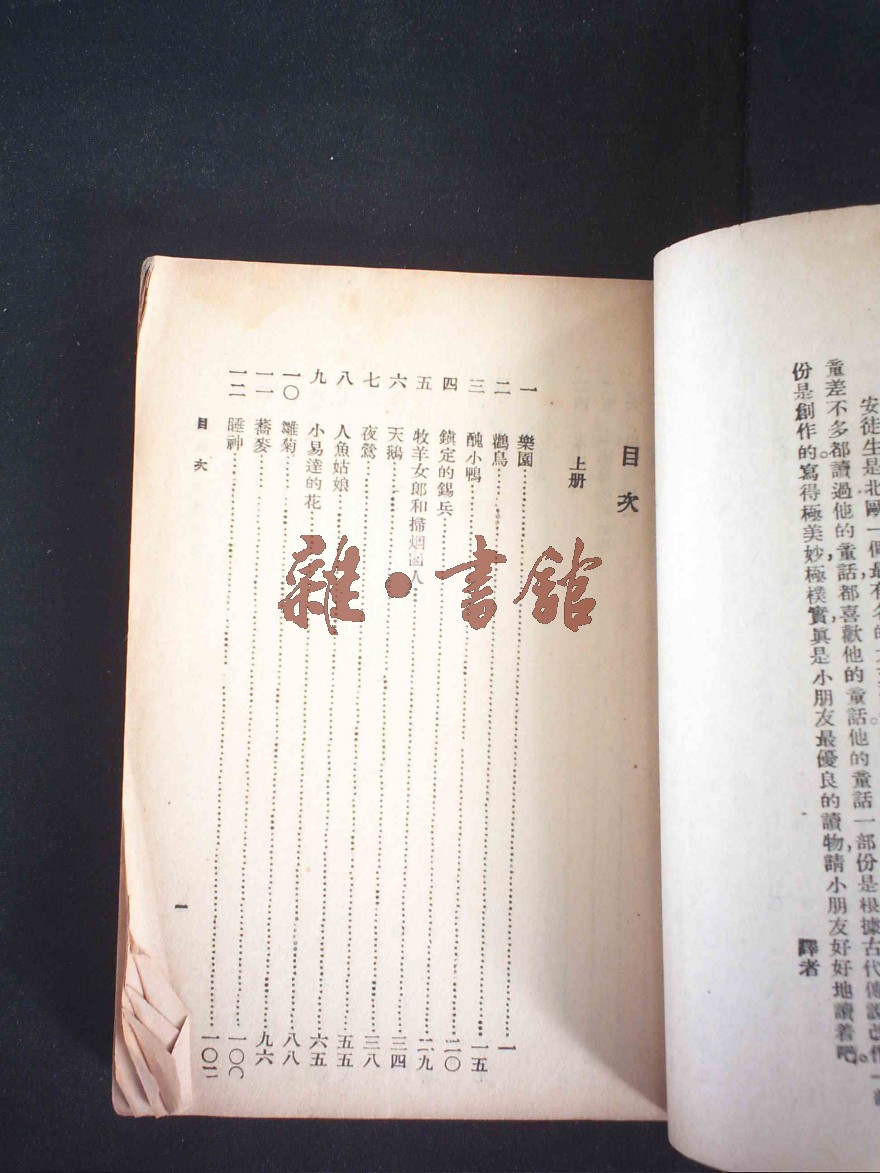 安徒生是北歐一個最有名的
童差不多都讀過他的童話,都喜歡他的童話他的童話一部份是根據古代傳說改作一部
份是創作的,寫得極美妙,極樸實,真是小朋友最優良的讀物,請小朋友好好地讀着吧。
譯者
目次
上册
一 樂園 一
二 鸛鳥 一五
三 醜小鴨 二〇
四 鎮定的錫兵 二九
五 牧羊女郎和掃烟囱人 三四
六 天鵝 三八
七 夜鶯 五五
八 人魚姑娘 六五
九 小易達的花 八八
一〇 雛菊 九六
一一 蕎麥 一〇〇
一二 睡神 一〇二
目次
一
雜·書館